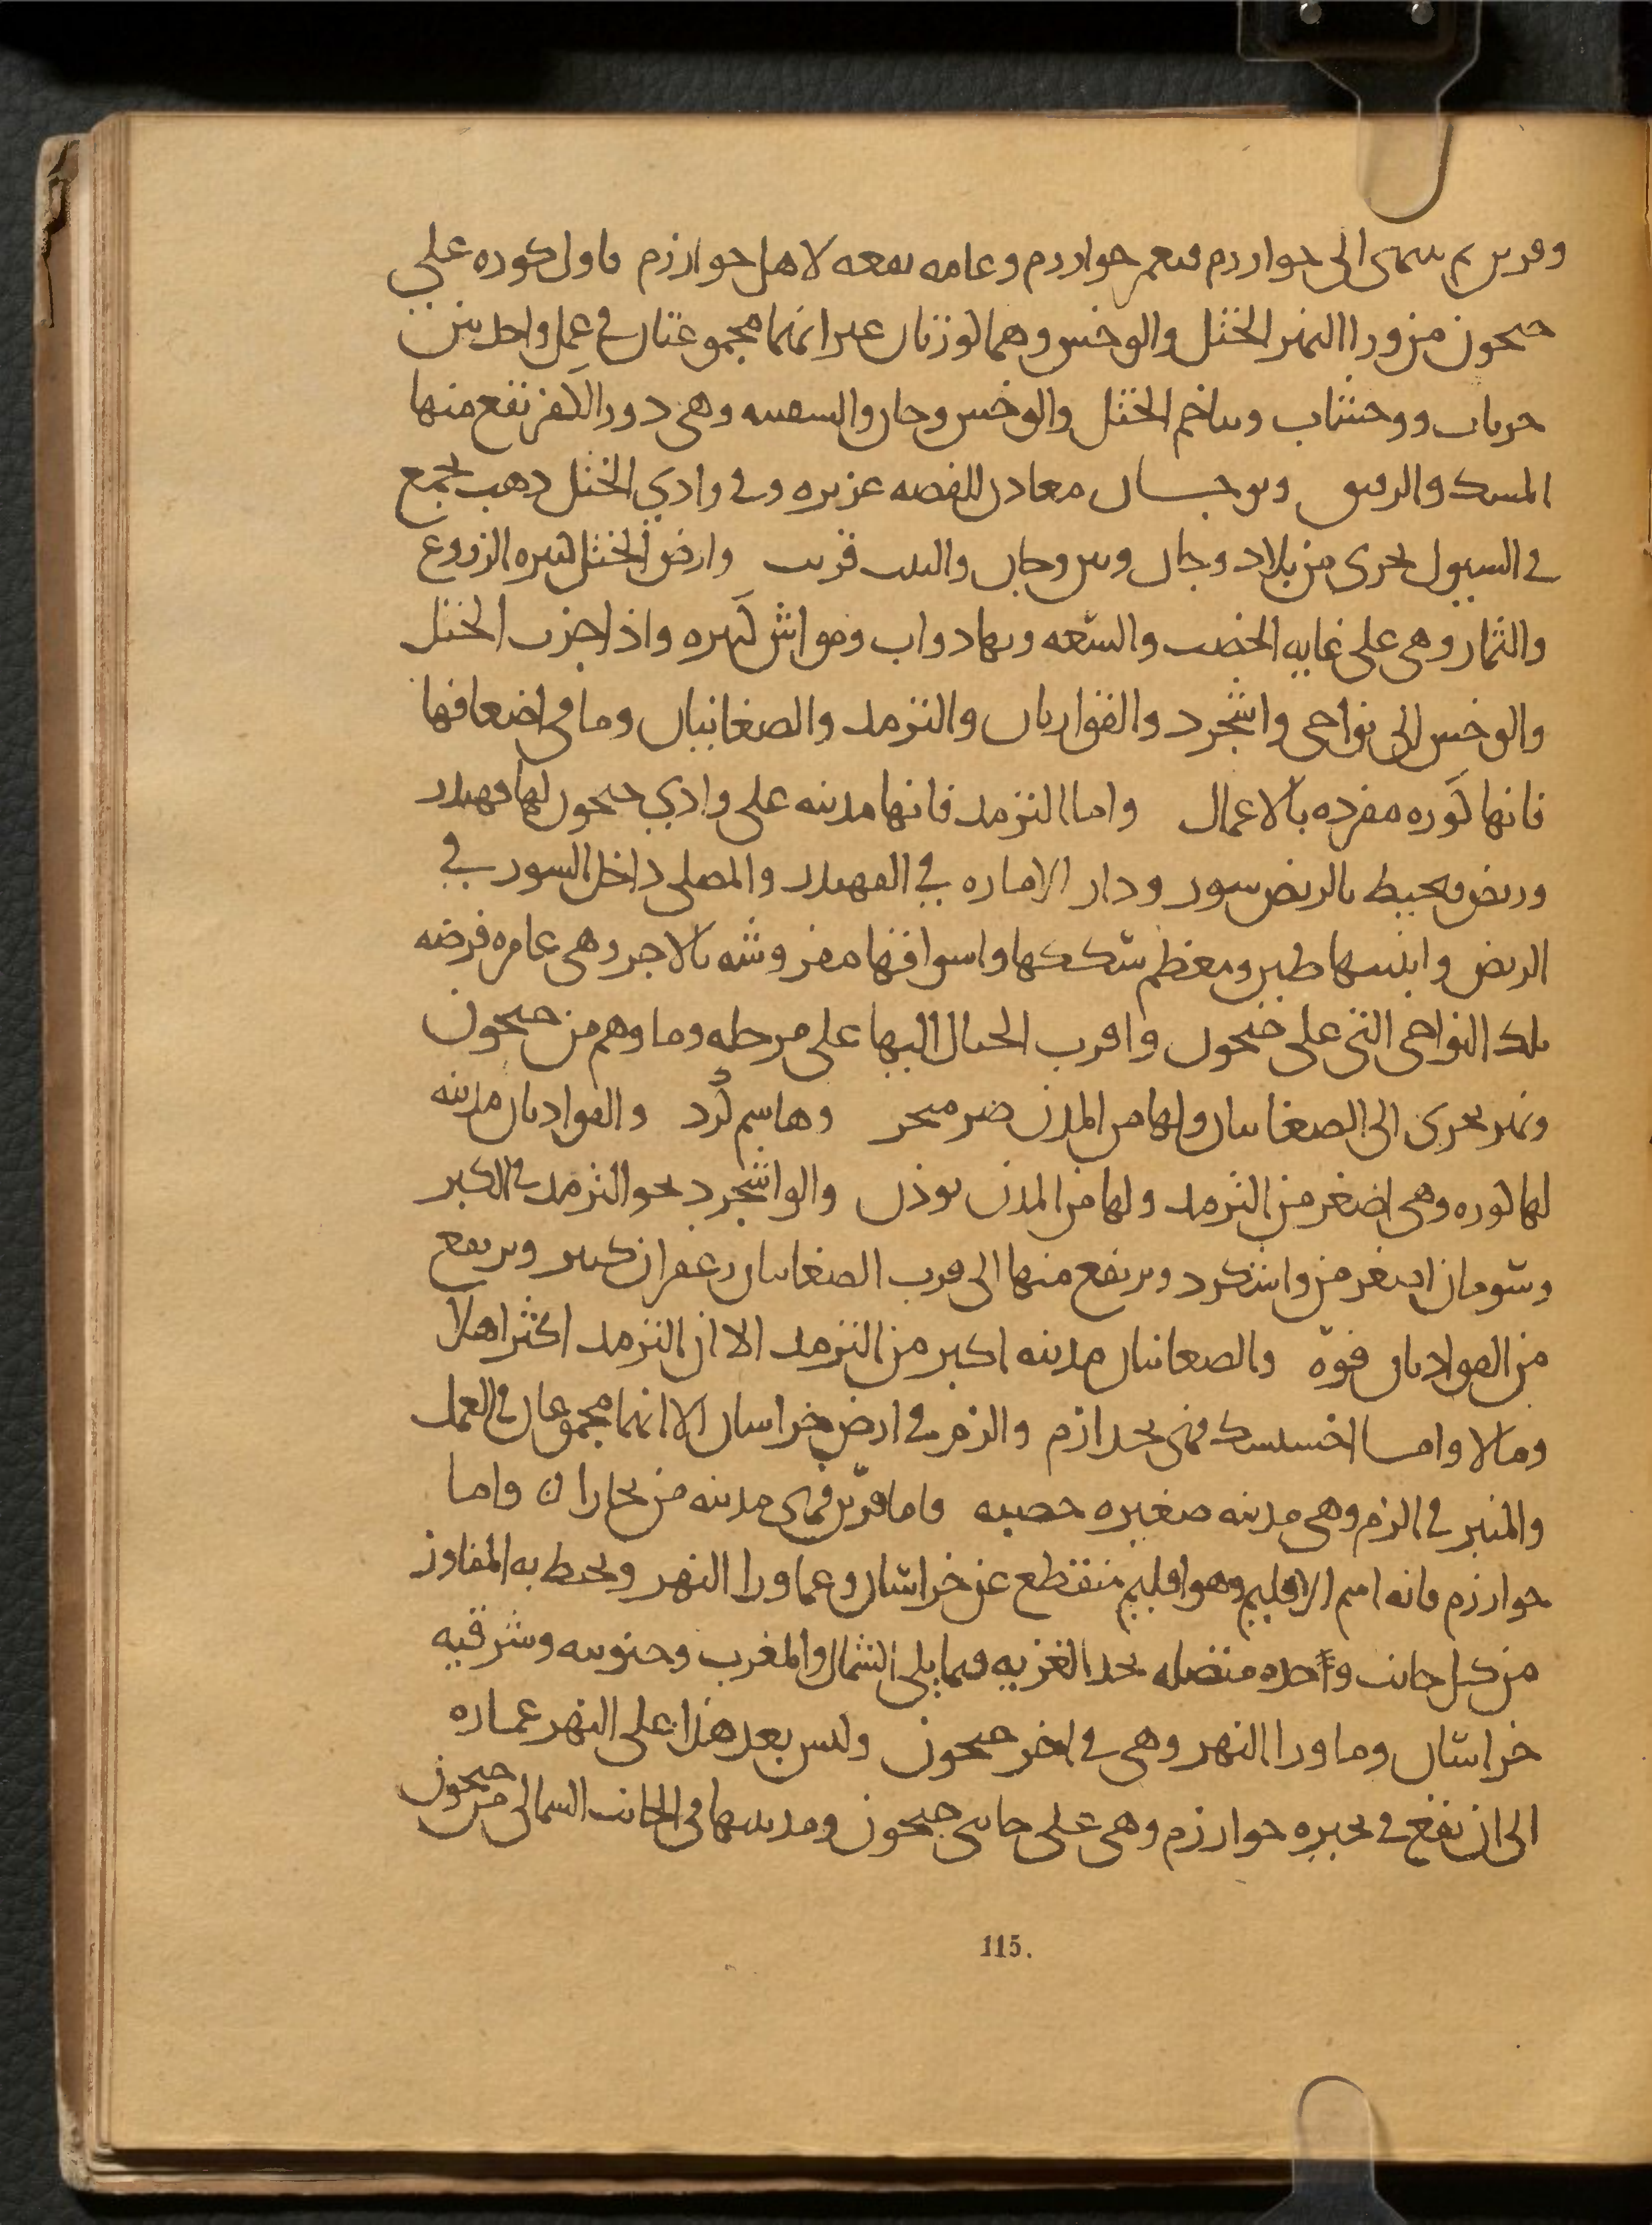 وفربر ثم ينتهى الى خوارزم فيعم خوارزم وعامه نفعه لاهل خوارزم فاول كوره على
جيحون من ورا النهر الختل والوخش وهما كورتان غير انهما مجموعتان في عمل واحد بين
حرياب ووخشاب ويتاخم الختل والوخش وخان والسقينه وهى دور الكفر تقع منها
المسك والرقيق وبوخان معادن للفضه غزيره وفي وادي الختل ذهب يجمع
في السيول يجرى من بلاد وخان وبين وخان والتبت قريب وارض الختل كثيره الزروع
والثمار وهى على غايه الخصب والسعه وبها دواب ومواش كثيره واذا جزت الختل
والوخش الى نواحى واشجرد والقواديان والترمد والصغانيان وما فى اضعافها
فانها كوره مفرده بالاعمال واما الترمد فانها مدينه على وادي جيحون لها قهندز
وربض ويحيط بالربض سور ودار الاماره في القهندز والمصلى داخل السور في
الربض وابنيتها طين ومعظم سككها واسواقها مفروشه بالاجر وهى عامره فرضه
تلك النواحى التى على جيحون واقرب الجبال اليها على مرحله وماوهم من جيحون
ونهر يجرى الى الصغانيان ولها من المدن صرمنجر وهاسم كرد والقواديان مدينه
لها كوره وهى اصغر من الترمد ولها من المدن نوذن والواشجرد نحو الترمد في الكبر
وشومان اصغر من واشكرد ويرتفع منها الى قرب الصغانيان زعفران كثير ويرتفع
من القواديان فوّه والصغانيان مدينه اكبر من الترمد الا ان الترمد اكثر اهلا
ومالا واما اخسيسك فهى بحدا زم والزم في ارض خراسان الا انهما مجموعان فى العمل
والمنبر في الزم وهى مدينه صغيره خصبه واما فربّر فهى مدينه من بخارا ن واما
خوارزم فانه اسم الاقليم وهو اقليم منقطع عن خراسان وعما ورا النهر ويحيط به المفاوز
من كل جانب واحده متصله بحد الغزيه فيما يلى الشمال والمغرب وجنوبيه وشرقيه
خراسان وما ورا النهر وهى في اخر جيحون وليس بعد هذا على النهر عماره
الى ان تقع في بحيره خوارزم وهى على جانبى جيحون ومدينتها فى الجانب الشمالى من جيحون
115.